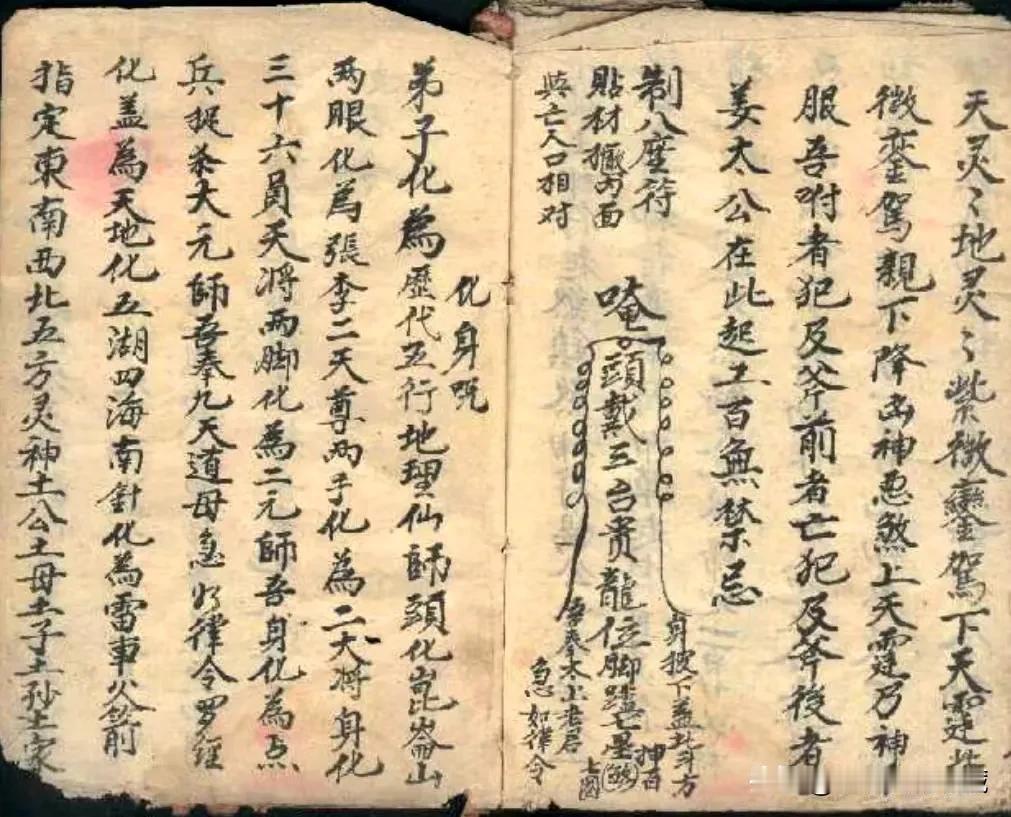 天灵〻地灵〻紫微鑾駕下天霆
微鑾駕親下降凶神惡煞上天霆乃神
服吾咐者犯及斧前者亡犯及斧後者
姜太公在此起工百無禁忌
制八座符
貼材攧內面
與亡人口相对
唵
頭戴三台贵龍位脚踏七星
身披下盖
押百
吾奉太上老君
急如律令
化身咒
弟子化為歷代五行地理仙師頭化崑崙山
两眼化為張李二天尊两手化為二大将身化
三十六員天将两脚化為二元師吾身化為五
兵捉杀大元師吾奉九天道母急如律令罗經
化盖為天地化五湖四海南針化為雷車火
指定東南西北五方灵神土公土母土子土孙土家